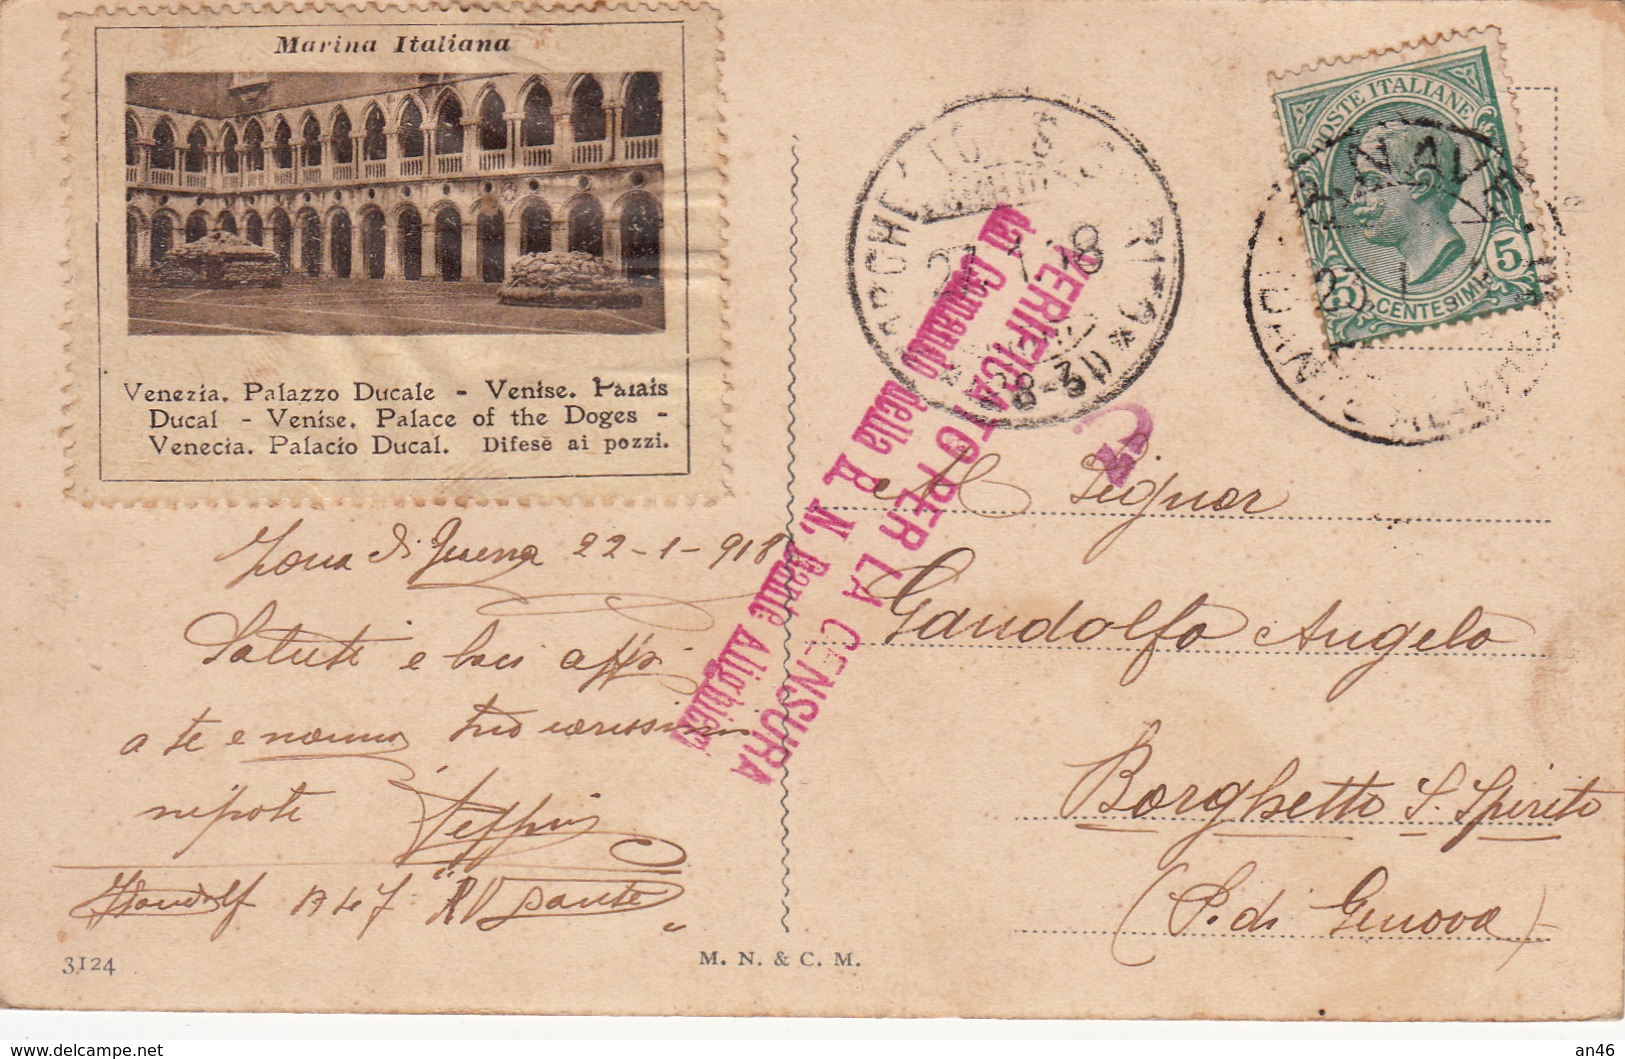 Marina Italiana
Venezia. Palazzo Ducale - Venise. Palais
Ducal - Venise. Palace of the Doges -
Venecia. Palacio Ducal. Difese ai pozzi.
POSTE ITALIANE
5 CENTESIMI 5
VERIFICATO PER LA CENSURA
dal Comando della R. N. Dante Alighieri
Zona di Guerra 22-1-918
Saluti e baci
a te e nonna tuo carissimo
nipote
Al Signor
Gandolfo Angelo
Borghetto S. Spirito
(P. di Genova)
3124
M. N. & C. M.
delcampe.net
an46